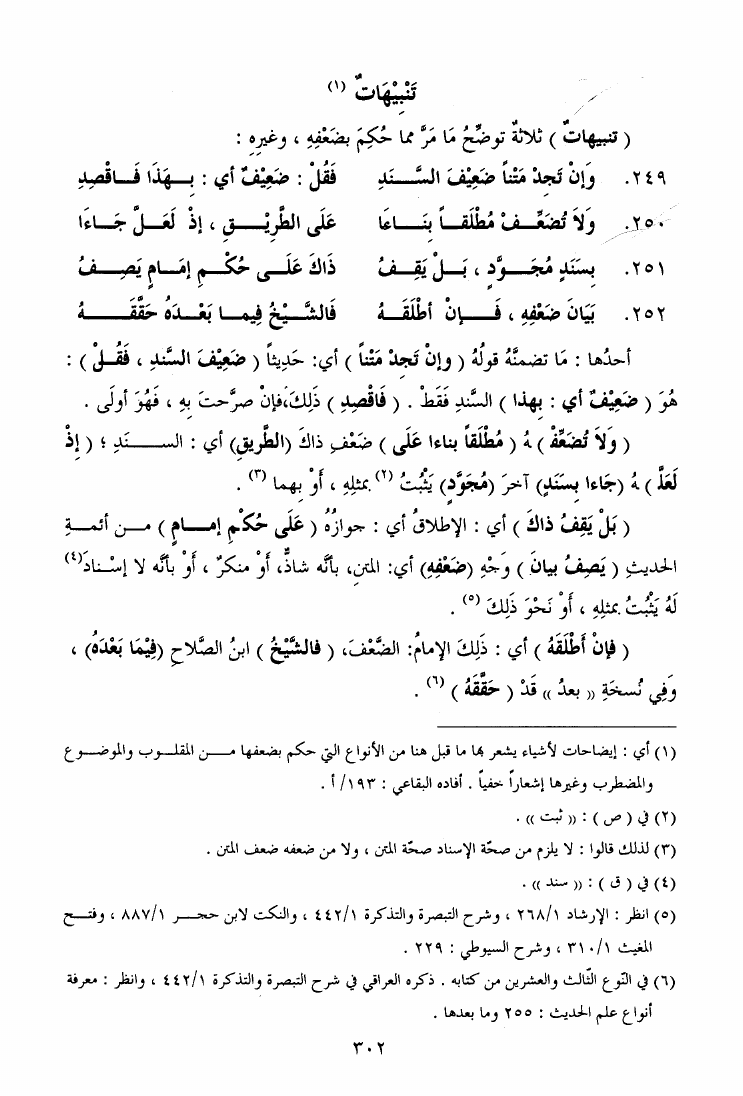 تَنْبِيْهَاتٌ (١)
( تنبيهاتٌ ) ثلاثةٌ توضِّحُ مَا مَرَّ مما حُكِمَ بضَعْفِهِ ، وغيرِهِ :
٢٤٩. وَإِنْ تَجِدْ مَتْناً ضَعِيْفَ السَّنَدِ فَقُلْ : ضَعِيْفٌ أي : بِهَذَا فَاقْصِدِ
٢٥٠. وَلاَ تُضَعِّفْ مُطْلَقاً بِنَاءَا عَلَى الطَّرِيْقِ ، إذْ لَعَلَّ جَاءَا
٢٥١. بِسَنَدٍ مُجَوَّدٍ ، بَلْ يَقِفُ ذَاكَ عَلَى حُكْمِ إِمَامٍ يَصِفُ
٢٥٢. بَيَانَ ضَعْفِهِ ، فَإِنْ أَطْلَقَهُ فَالشَّيْخُ فِيمَا بَعْدَهُ حَقَّقَهُ
أحدُها : مَا تضمنَّهُ قولُهُ ( وإِنْ تَجِدْ مَتْناً ) أي: حَدِيثاً ( ضَعِيْفَ السَّندِ ، فَقُلْ ) :
هُوَ ( ضعِيْفٌ أي : بهذا ) السَّندِ فَقَط . ( فَاقْصِدِ ) ذَلِكَ،فإنْ صرَّحتَ بِهِ ، فَهُوَ أولَى .
( وَلاَ تُضعِّفْ ) ـهُ ( مُطْلَقاً بناءا عَلَى ) ضَعْفِ ذاكَ (الطَّريقِ) أي : السـنَدِ ؛ ( إِذْ
لَعَلَّ ) ـهُ (جَاءا بِسَندٍ) آخرَ (مُجَوَّدٍ) يَثْبُتُ (٢) بمثلِهِ ، أَوْ بهما (٣) .
( بَلْ يَقِفُ ذاكَ ) أي : الإطلاقُ أي : جوازُهُ ( عَلَى حُكْمِ إمــامٍ ) مــن أئمــةِ
الحديثِ ( يَصِفُ بيانَ ) وَجْهِ (ضَعْفِهِ) أي: المتنِ، بأنَّه شاذٌّ، أَوْ منكرٌ ، أَوْ بأنَّه لا إسْنادَ(٤)
لَهُ يَثْبُتُ بمثلِهِ ، أَوْ نَحْوَ ذَلِكَ (٥) .
( فإنْ أَطْلَقَهُ ) أي : ذَلِكَ الإمامُ: الضَّعْفَ، ( فالشَّيْخُ ) ابنُ الصَّلاحِ (فِيْمَا بَعْدَهُ) ،
وَفِي نُسخَةِ « بعدُ » قَدْ ( حَقَّقَهُ ) (٦) .
(١) أي : إيضاحات لأشياء يشعر بها ما قبل هنا من الأنواع التي حكم بضعفها مــن المقلــوب والموضــوع
والمضطرب وغيرها إشعاراً خفياً . أفاده البقاعي : ١٩٣/ أ .
(٢) في ( ص ) : « ثبت » .
(٣) لذلك قالوا : لا يلزم من صحّة الإسناد صحّة المتن ، ولا من ضعفه ضعف المتن .
(٤) في ( ق ) : « سند » .
(٥) انظر : الإرشاد ٢٦٨/١ ، وشرح التبصرة والتذكرة ٤٤٢/١ ، والنكت لابن حجــر ٨٨٧/١ ، وفتــح
المغيث ٣١٠/١ ، وشرح السيوطي : ٢٢٩ .
(٦) في النّوع الثّالث والعشرين من كتابه . ذكره العراقي في شرح التبصرة والتذكرة ٤٤٢/١ ، وانظر : معرفة
أنواع علم الحديث : ٢٥٥ وما بعدها .
٣٠٢